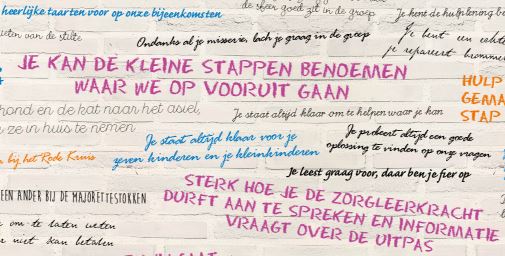 heerlijke taarten voor op onze bijeenkomsten
de sfeer goed zit in de groep
Je kent de hulplening be
Ondanks al je misserie, lach je graag in de groep
Je bent een echte
je repareert bromme
ieten van de stilte
JE KAN DE KLEINE STAPPEN BENOEMEN
WAAR WE OP VOORUIT GAAN
HULP
GEMA
STAP
hond en de kat naar het asiel,
ze in huis te nemen
Je staat altijd klaar om te helpen waar je kan
Je staat altijd klaar voor je
zeven kinderen en je kleinkinderen
Je probeert altijd een goede
oplossing te vinden op onze vragen
bij het Rode Kruis
Je leest graag voor, daar ben je fier op
EEN ANDER BIJ DE MAJORETTESTOKKEN
STERK HOE JE DE ZORGLEERKRACHT
DURFT AAN TE SPREKEN EN INFORMATIE
VRAAGT OVER DE UITPAS
om te laten weten
niet kan betalen